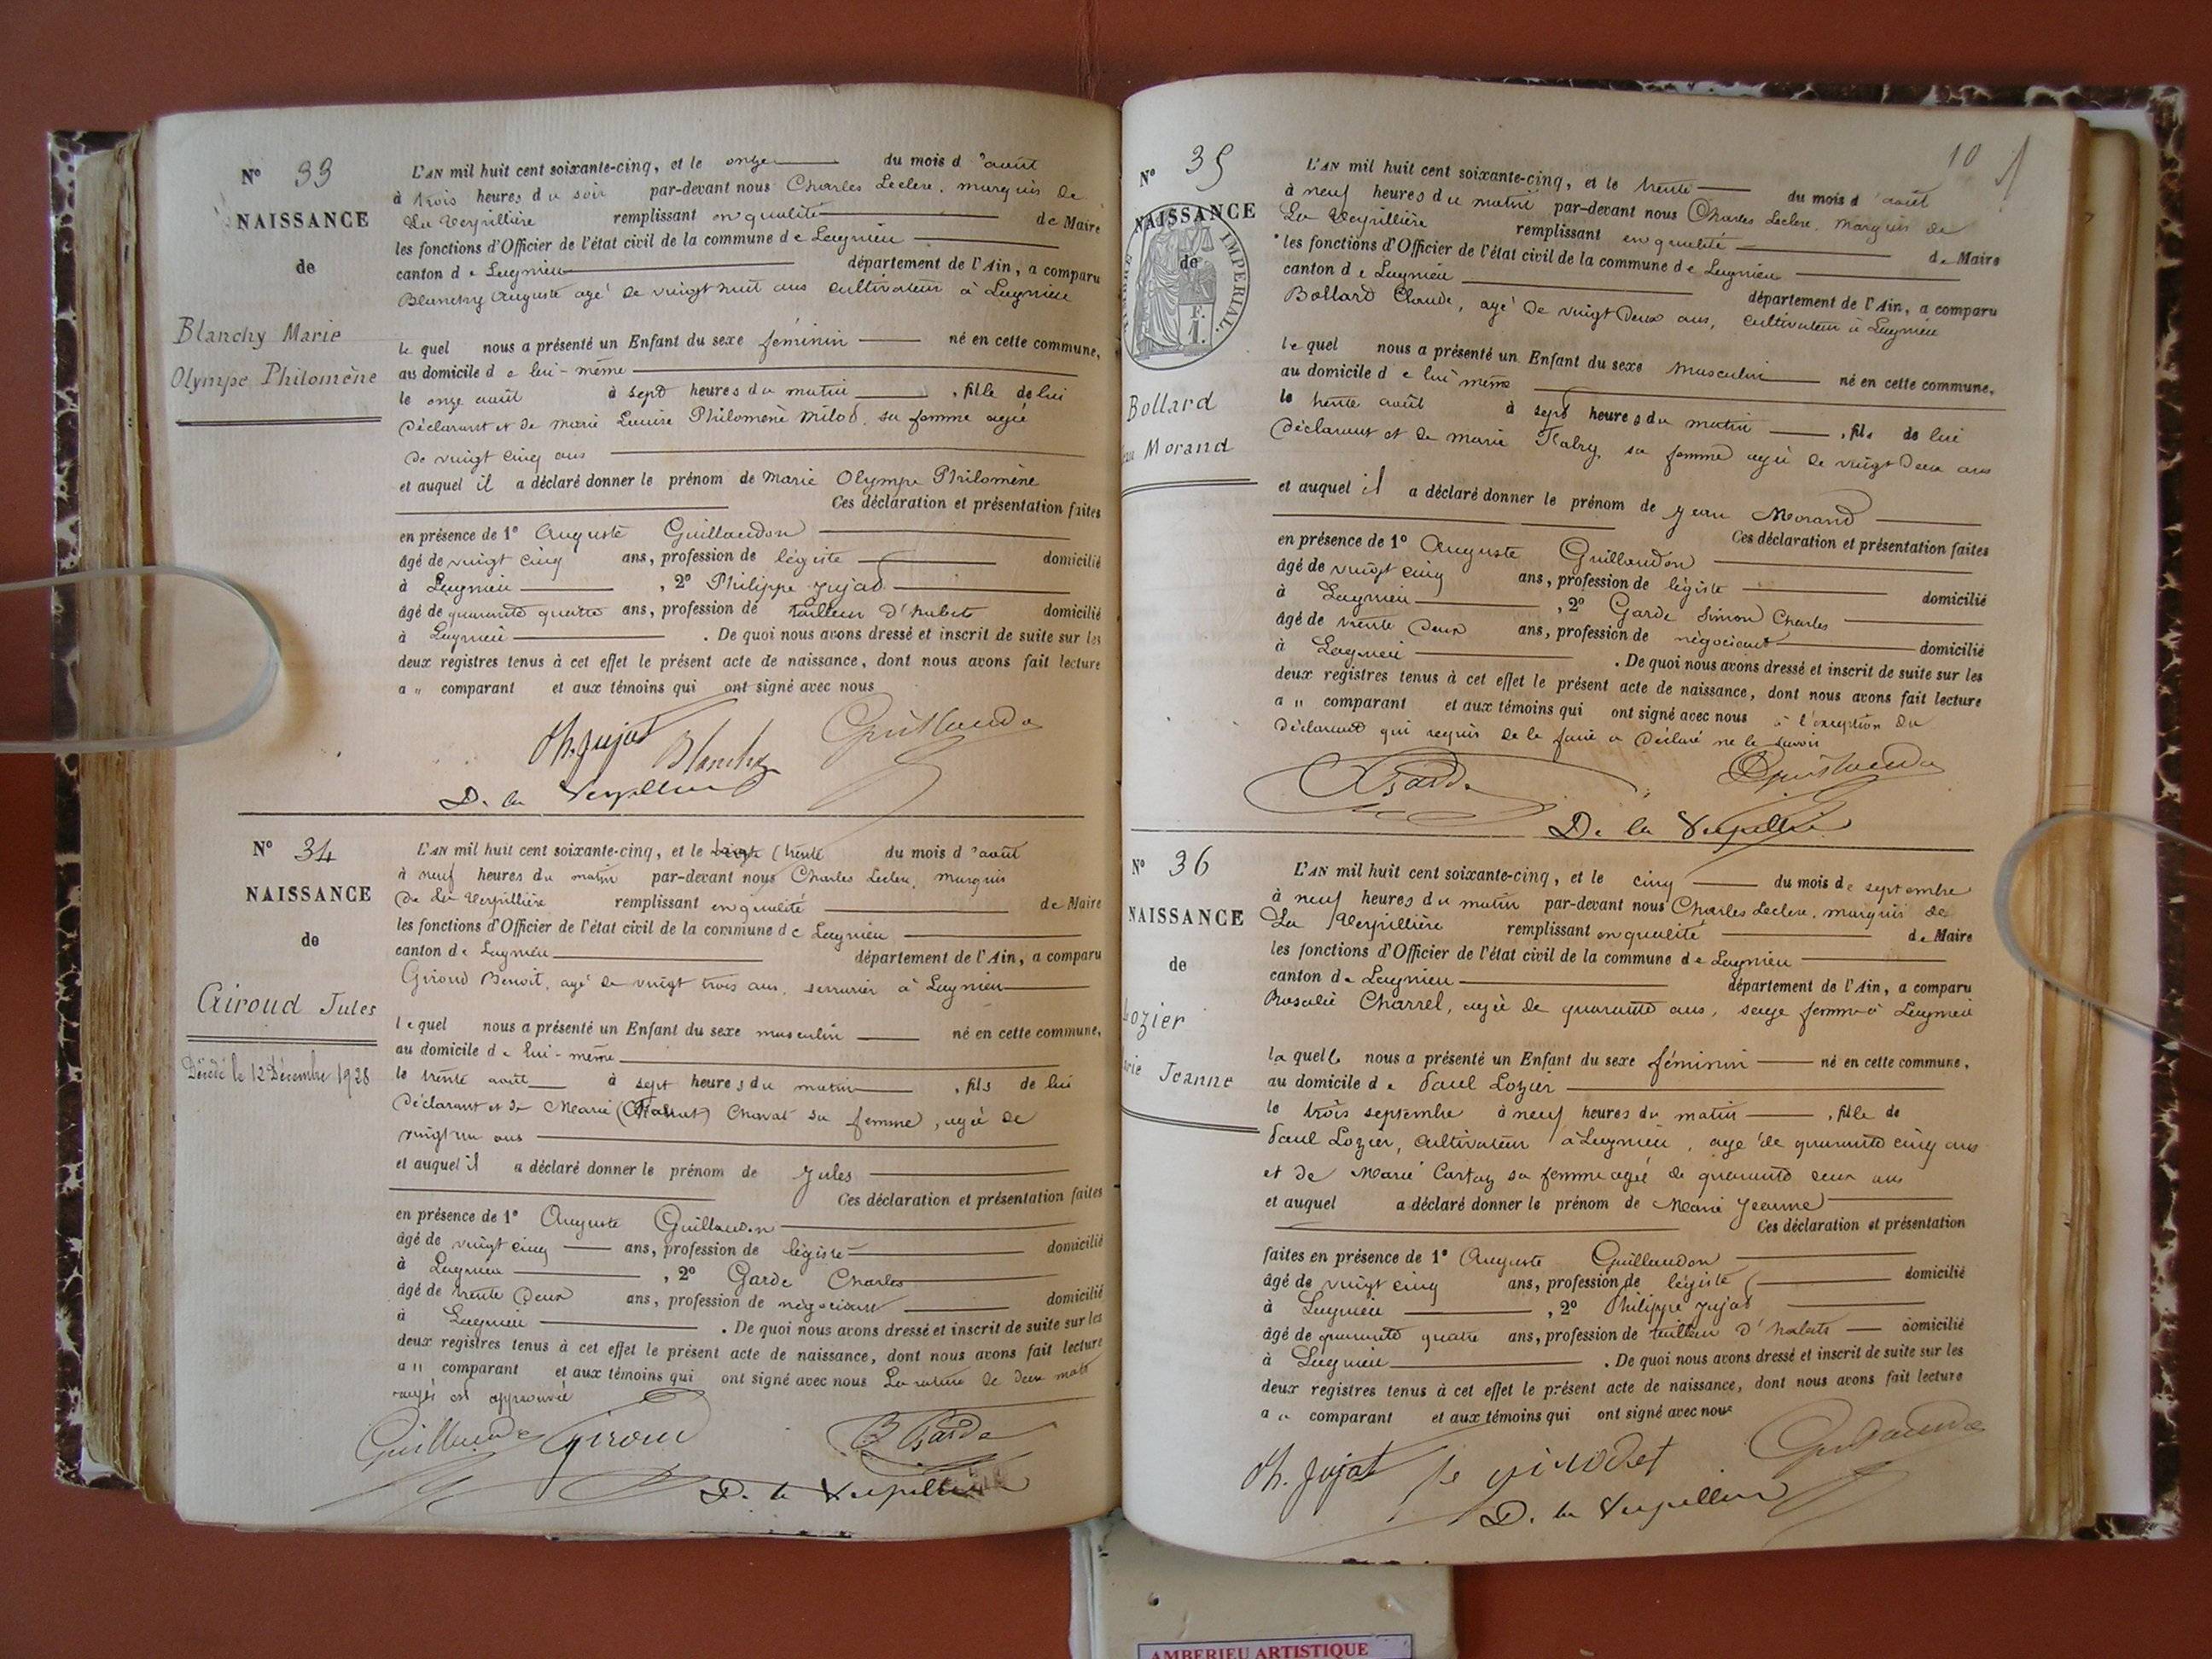 N° 33
NAISSANCE
de
Blanchy Marie
Olympe Philomène
L'AN mil huit cent soixante-cinq, et le onze du mois d'août
à trois heures du soir par-devant nous Charles Leclerc, marquis de
La Verpillière remplissant en qualité de Maire
les fonctions d'Officier de l'état civil de la commune de Lagnieu
canton de Lagnieu département de l'Ain, a comparu
Blanchy Auguste agé de vingt huit ans cultivateur à Lagnieu
le quel nous a présenté un Enfant du sexe féminin né en cette commune,
au domicile de lui-même
le onze août à sept heures du matin, fille de lui
déclarant et de marie Louise Philomène Milod, sa femme agée
de vingt cinq ans
et auquel il a déclaré donner le prénom de Marie Olympe Philomène
Ces déclaration et présentation faites
en présence de 1° Auguste Guillaudon
âgé de vingt cinq ans, profession de légiste domicilié
à Lagnieu, 2° Philippe Jujat
âgé de quarante quatre ans, profession de tailleur d'habits domicilié
à Lagnieu. De quoi nous avons dressé et inscrit de suite sur les
deux registres tenus à cet effet le présent acte de naissance, dont nous avons fait lecture
a " comparant et aux témoins qui ont signé avec nous
Ph. Jujat Blanchy
D. la Verpillière
N° 34
NAISSANCE
de
Giroud Jules
Décédé le 12 Décembre 1928
L'AN mil huit cent soixante-cinq, et le trente du mois d'août
à neuf heures du matin par-devant nous Charles Leclerc, marquis
de La Verpillière remplissant en qualité de Maire
les fonctions d'Officier de l'état civil de la commune de Lagnieu
canton de Lagnieu département de l'Ain, a comparu
Giroud Benoit, agé de vingt trois ans, serrurier à Lagnieu
le quel nous a présenté un Enfant du sexe masculin né en cette commune,
au domicile de lui-même
le trente août à sept heures du matin, fils de lui
déclarant et de Marie Chavat sa femme, agée de
vingt un ans
et auquel il a déclaré donner le prénom de Jules
Ces déclaration et présentation faites
en présence de 1° Auguste Guillaudon
âgé de vingt cinq ans, profession de légiste domicilié
à Lagnieu, 2° Garde Charles
âgé de trente deux ans, profession de négociant domicilié
à Lagnieu. De quoi nous avons dressé et inscrit de suite sur les
deux registres tenus à cet effet le présent acte de naissance, dont nous avons fait lecture
a " comparant et aux témoins qui ont signé avec nous La rature de deux mots
rayés est approuvée
Giroud Garde
D. la Verpillière
10
N° 35
NAISSANCE
de
IMPERIAL.
F.
1.
Bollard
Morand
L'AN mil huit cent soixante-cinq, et le trente du mois d'août
à neuf heures du matin par-devant nous Charles Leclerc, marquis de
La Verpillière remplissant en qualité de Maire
les fonctions d'Officier de l'état civil de la commune de Lagnieu
canton de Lagnieu département de l'Ain, a comparu
Bollard Claude, agé de vingt deux ans, cultivateur à Lagnieu
le quel nous a présenté un Enfant du sexe masculin né en cette commune,
au domicile de lui même
le trente août à sept heures du matin, fils de lui
déclarant et de marie sa femme agée de vingt deux ans
et auquel il a déclaré donner le prénom de Jean Morand
Ces déclaration et présentation faites
en présence de 1° Auguste Guillaudon
âgé de vingt cinq ans, profession de légiste
à Lagnieu, 2° Garde Simon Charles domicilié
âgé de trente deux ans, profession de négociant domicilié
à Lagnieu. De quoi nous avons dressé et inscrit de suite sur les
deux registres tenus à cet effet le présent acte de naissance, dont nous avons fait lecture
a " comparant et aux témoins qui ont signé avec nous à l'exception du
déclarant qui requis de le faire a déclaré ne le savoir
Garde
De la Verpillière
N° 36
NAISSANCE
de
Lozier
Jeanne
L'AN mil huit cent soixante-cinq, et le cinq du mois de septembre
à neuf heures du matin par-devant nous Charles Leclerc, marquis de
La Verpillière remplissant en qualité de Maire
les fonctions d'Officier de l'état civil de la commune de Lagnieu
canton de Lagnieu département de l'Ain, a comparu
Rosalie Charrel, agée de quarante ans, sage femme à Lagnieu
la quelle nous a présenté un Enfant du sexe féminin né en cette commune,
au domicile de Paul Lozier
le trois septembre à neuf heures du matin, fille de
Paul Lozier, cultivateur à Lagnieu, agé de quarante cinq ans
et de Marie Cartaz sa femme agée de quarante deux ans
et auquel a déclaré donner le prénom de Marie Jeanne
Ces déclaration et présentation
faites en présence de 1° Auguste Guillaudon
âgé de vingt cinq ans, profession de légiste domicilié
à Lagnieu, 2° Philippe Jujat
âgé de quarante quatre ans, profession de tailleur d'habits domicilié
à Lagnieu. De quoi nous avons dressé et inscrit de suite sur les
deux registres tenus à cet effet le présent acte de naissance, dont nous avons fait lecture
a " comparant et aux témoins qui ont signé avec nous
Ph. Jujat
D. la Verpillière
AMBERIEU ARTISTIQUE